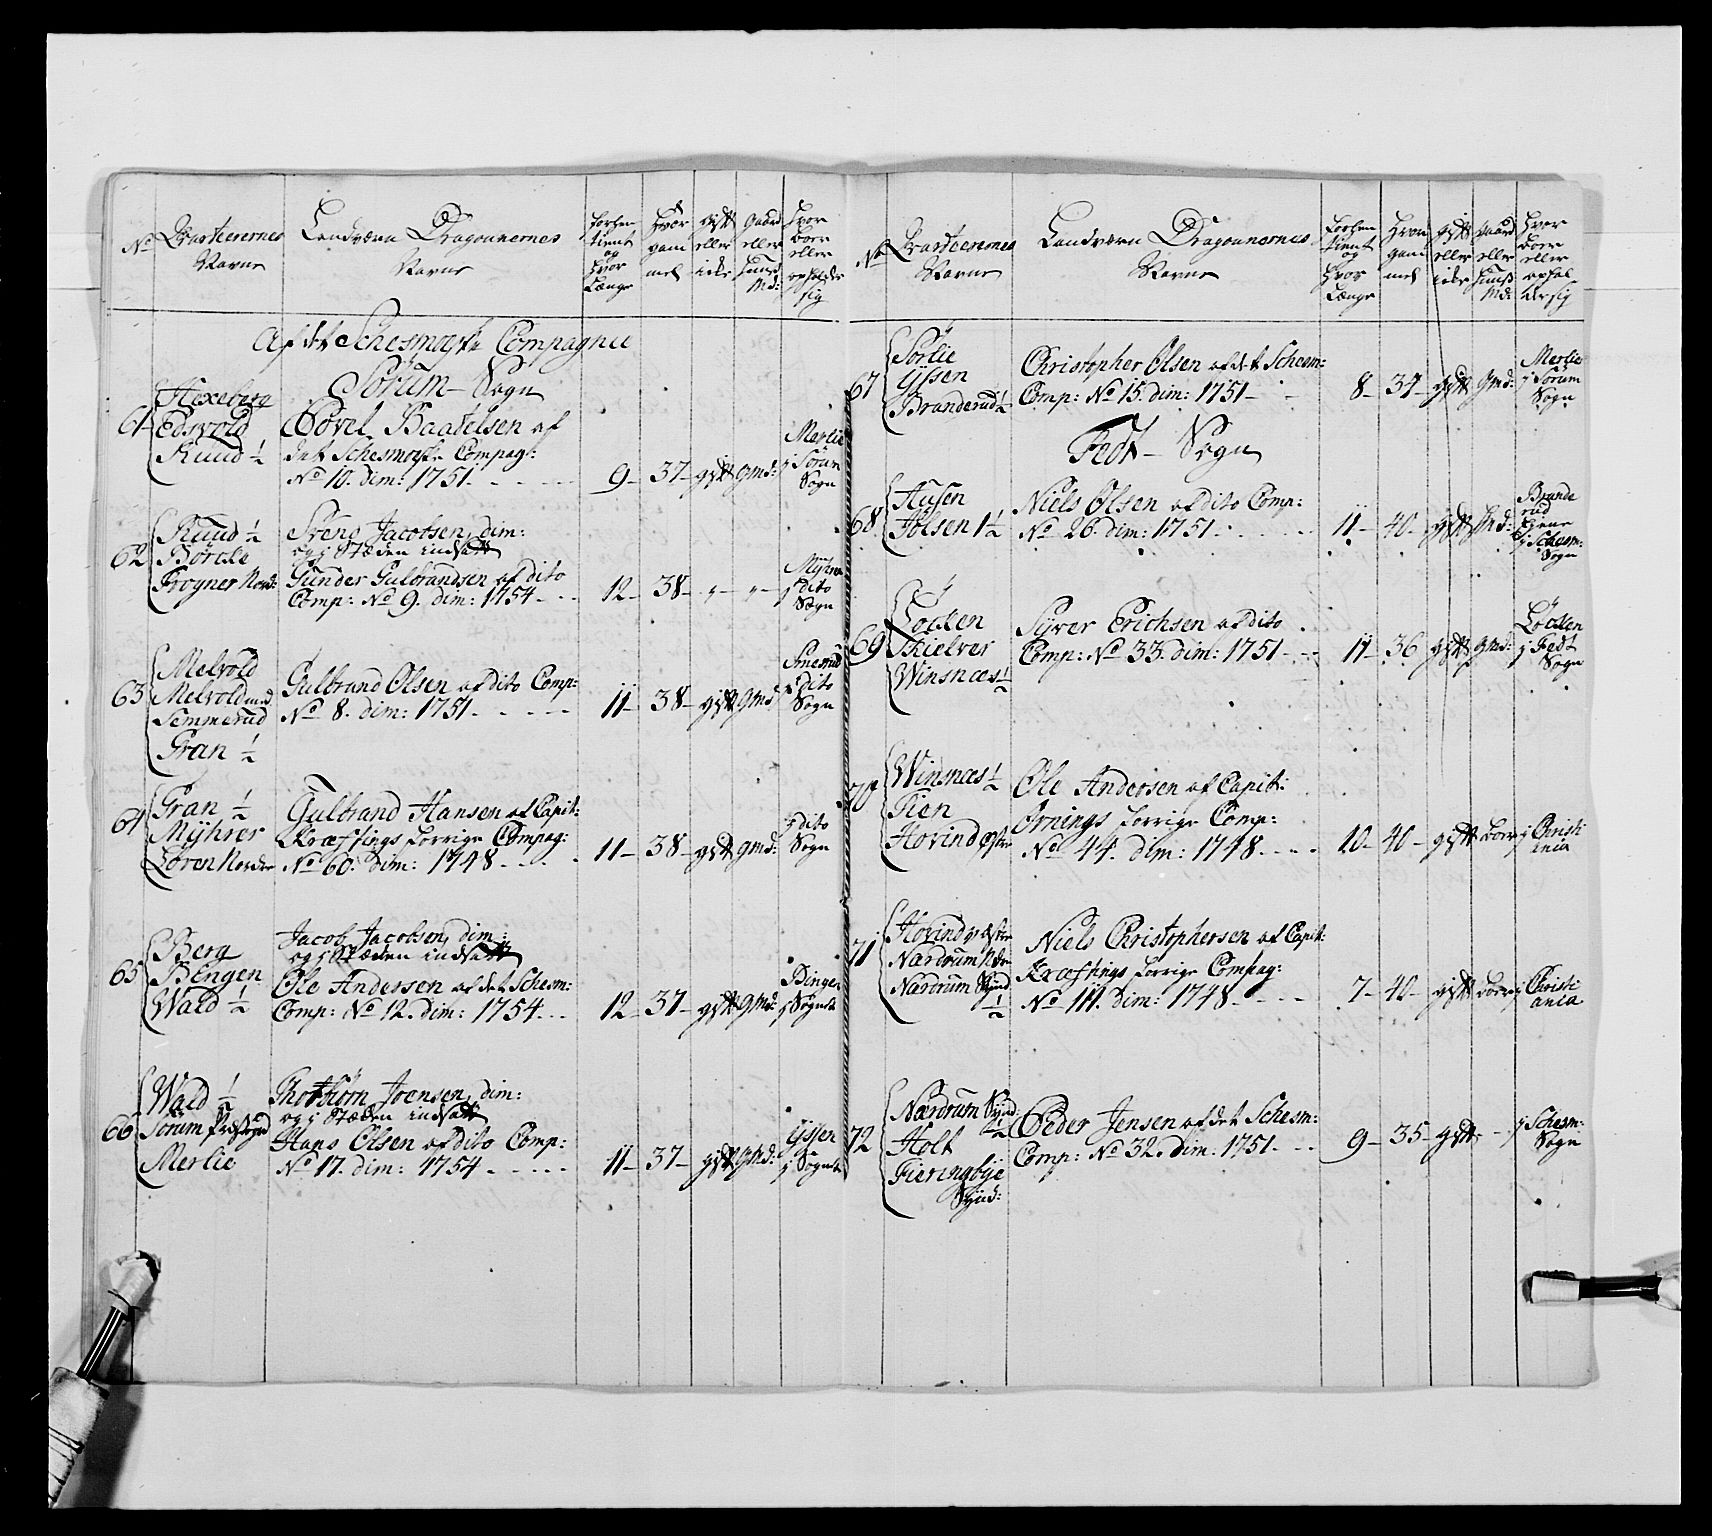 No Qvarteerernes Navne
Landværn Dragounernes Navne
Forhen tient og hvor Længe
Hvor gam mel
gift eller icke
Gaard eller Huusm: Md:
Hvor boer eller opholder sig
Af det Schesmoeske Compagnie
Sörum Sogn
61 Hexeberg
Edsvold
Ruud ½
Povel Baadelsen af
det Schesmoeske Compag:
No 10. dim: 1751.
9 37 gift Gmd:
Merlie i Sörum Sogn
62 Ruud ½
Börcke
Frogner Nord:
Svend Jacobsen, dim:
og i Stæden indsatt
Gunder Gulbrandsen af dito
Comp: No 9. dim: 1754
12 38 " "
Myhrer i dito Sogn
63 Melvold
Melvold
Semmerud
Gran ½
Gulbrand Olsen af dito Comp:
No 8. dim: 1751
11 38 gift Gmd
i dito Sogn
64 Gran ½
Myhrer
Lören Nordre
Gulbrand Hansen af Capit:
Kræftings forrige Compag:
No 60. dim: 1748
11 38 gift Gmd:
i dito Sogn
65 Berg
Bingen
Wald ½
Jacob Jacobsen, dim:
og i Stæden indsatt
Ole Anderssen af det Schesm:
Comp: No 12. dim: 1754
12 37 gift Gmd:
Bingen i Sognet
66 Wald ½
Sörum Præstegrd
Merlie
Thorbiørn Joensen, dim:
og i Stæden indsatt
Hans Olsen af dito Comp:
No 17. dim: 1754
11 37 gift Gmd:
Gissen i Sognet
No Qvarteerernes Navne
Landværn Dragounernes Navne
Forhen tient og hvor Længe
Hvor gam mel
gift eller icke
Gaard eller Huusm: Md:
Hvor boer eller ophol der sig
67 Sörlie
Gissen
Branderud ½
Christopher Olsen af det Schesm:
Comp: No 15. dim: 1751
8 34 gift Gmd:
Merlie i Sörum Sogn
Fedt Sogn
68 Husen
Jölsen 1½
Niels Olsen af dito Comp:
No 26. dim: 1751
11 40 gift Hmd:
Brande rud i Schesm: Sogn
69 Löcken
Skielver
Winsnæs ½
Syver Erichsen af dito
Comp: No 33. dim: 1751
11 36 gift Gmd:
Löcken i Fedt Sogn
70 Winsnæs ½
Tien
Hovind Østre
Ole Andersen af Capit:
Ornings forrige Comp:
No 44. dim: 1748
10 40 gift boer i Christi ania
71 Hovind Vestre
Nærdrum Ndre
Nærdrum Synd ½
Niels Christophersen af Capit:
Kræftings forrige Compag:
No 111. dim: 1748
7 40 gift boer i Christi ania
72 Nærdrum Synd: ½
Holt
Fieringbye Synd:
Peder Jensen af det Schesm:
Comp: No 32. dim: 1751
9 35 gift
i Schesm: Sogn